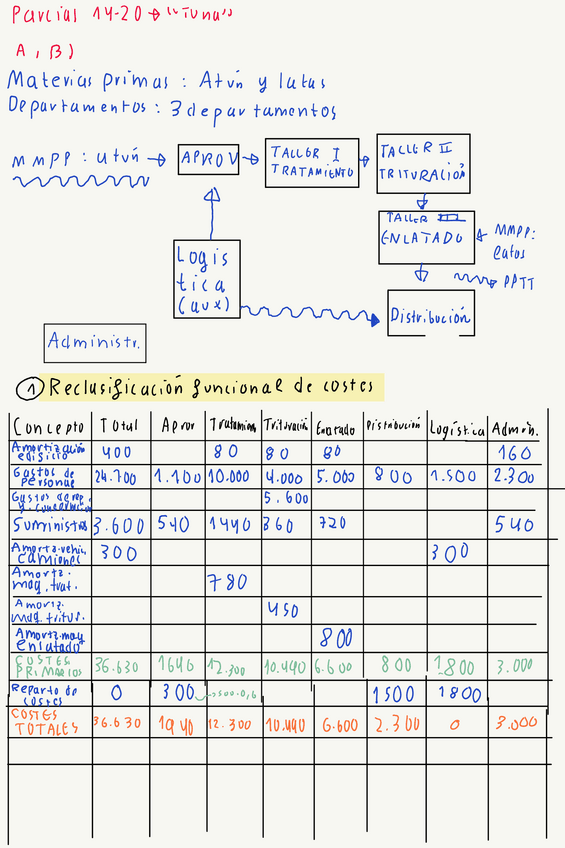 Parcial 14-20 → "Tuna"
A, B)
Materias primas: Atún y latas
Departamentos: 3 departamentos
MMPP: atún → APROV → TALLER I TRATAMIENTO → TALLER II TRITURACIÓN
TALLER III ENLATADO ← MMPP: latas
→ PPTT
Logística (aux)
Distribución
Administr.
① Reclasificación funcional de costes
Concepto Total Aprov Tratamien. Trituración Enlatado Distribución Logística Admón.
Amortización edificio 400 80 80 80 160
Gastos de personal 24.700 1.100 10.000 4.000 5.000 800 1.500 2.300
Gastos de rep. y conservación 5.600
Suministros 3.600 540 1440 360 720 540
Amortz. vehic. camiones 300 300
Amortz. maq. trat. 780
Amortz. maq. tritur. 450
Amortz. maq enlatado 800
COSTES PRIMARIOS 36.630 1640 12.300 10.490 6.600 800 1.800 3.000
Reparto de costes 0 300 1500 1800
COSTES TOTALES 36.630 1940 12.300 10.490 6.600 2.300 0 3.000